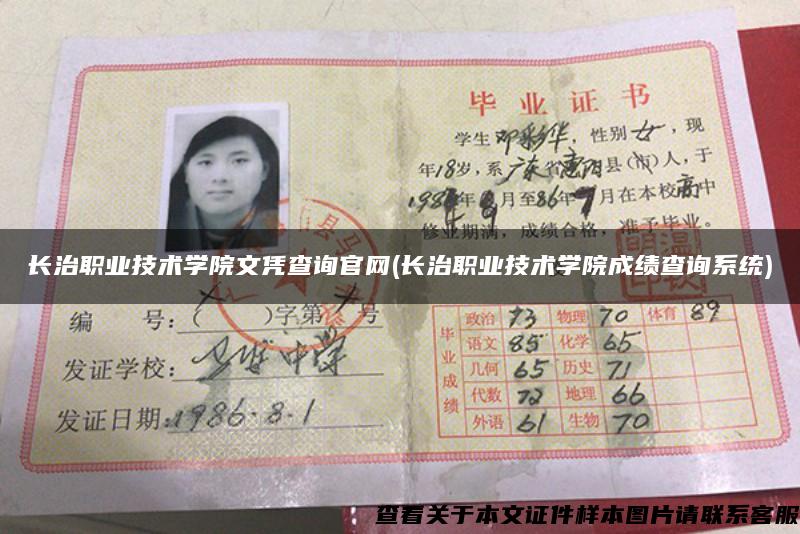 毕业证书
学生邓彩华，性别女，现
年18岁，系广东省惠阳县(市)人，于
198 年9月至86年7月在本校高中
修业期满，成绩合格，准予毕业。
长治职业技术学院文凭查询官网(长治职业技术学院成绩查询系统)
编 号：( )字第 号
发证学校：中学
发证日期：1986.8.1
毕业成绩
政治 73 物理 70 体育 89
语文 85 化学 65
几何 65 历史 71
代数 72 地理 66
外语 61 生物 70
查看关于本文证件样本图片请联系客服